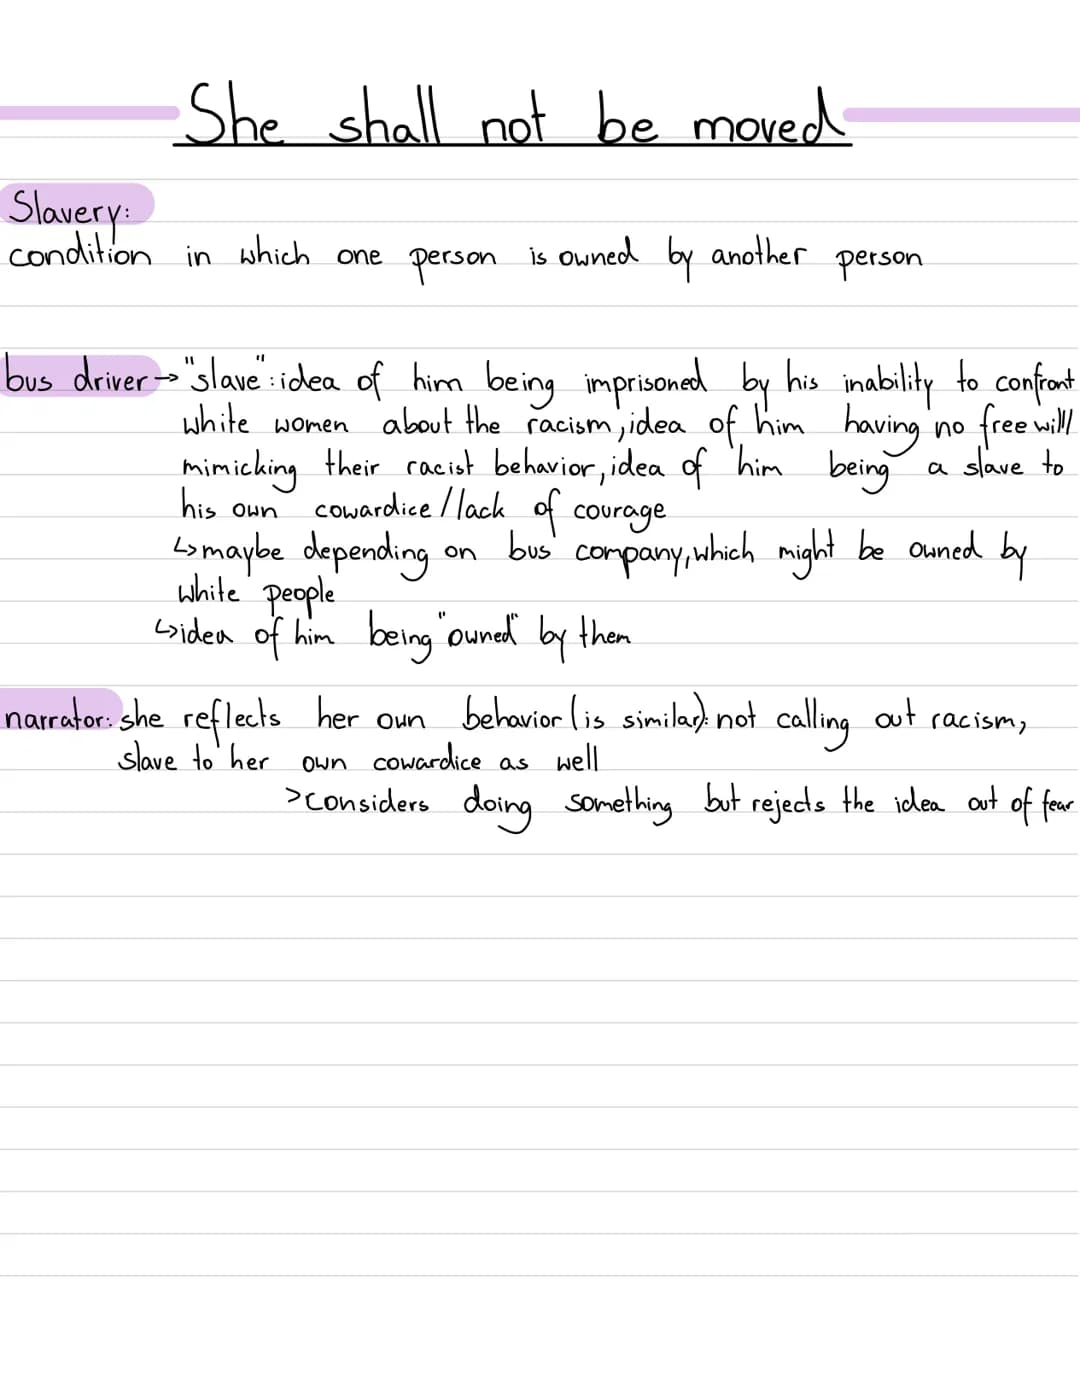 She shall not be moved
Slavery:
condition in which one person is owned by another person
bus driver → "slave": idea of him being imprisoned by his inability to confront
white women about the racism, idea of him having no free will
mimicking their racist behavior, idea of him being a slave to
his own cowardice / lack of courage
↳ maybe depending on bus company, which might be owned by
white people
↳ idea of him being "owned" by them
narrator: she reflects her own behavior (is similar): not calling out racism,
slave to her own cowardice as well
> considers doing something but rejects the idea out of fear